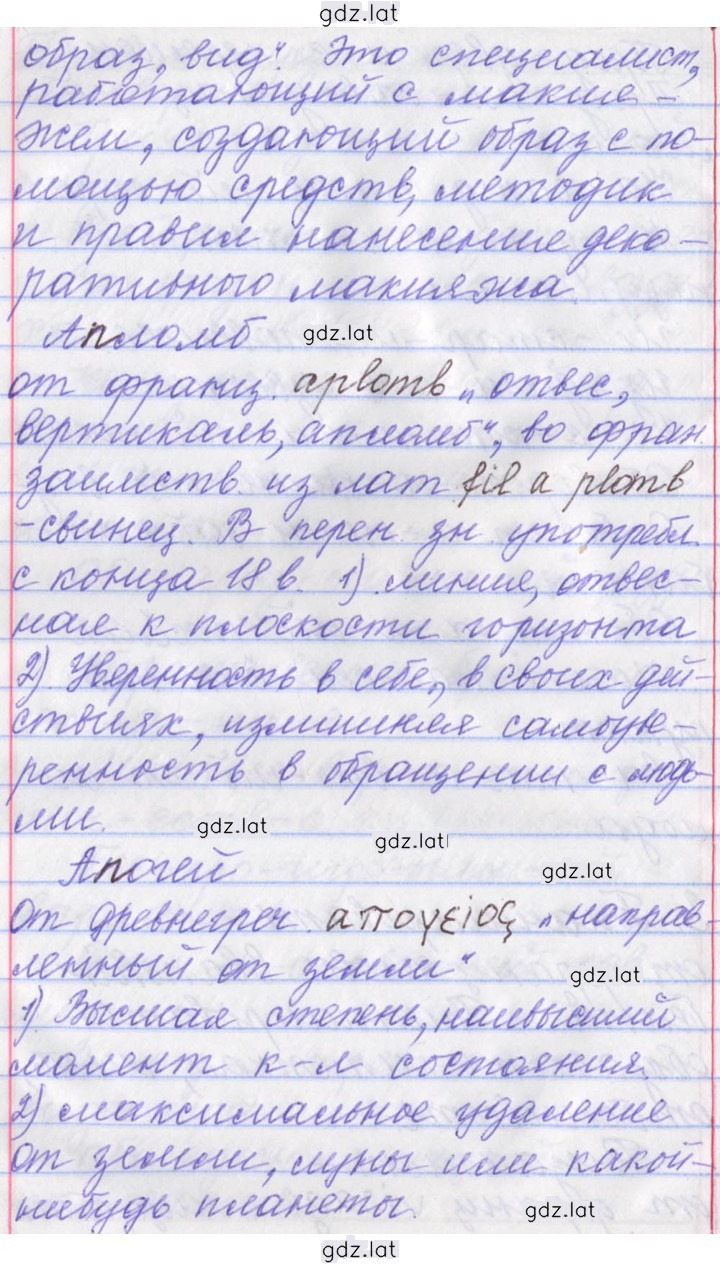 gdz.lat
образ, вид". Это специалист,
работающий с макия-
жем, создающий образ с по-
мощью средств, методик
и правил нанесения деко-
ративного макияжа.
Апломб
gdz.lat
от франц. aplomb „отвес,
вертикаль, апломб", во фран.
заимств. из лат fil a plomb
-свинец. В перен. зн. употребл.
с конца 18 в. 1) линия, отвес-
ная к плоскости горизонта
2) Уверенность в себе, в своих дей-
ствиях, излишняя самоуве-
ренность в обращении с людь-
ми.
gdz.lat
gdz.lat
Апогей
gdz.lat
от древнегреч. απογειος „направ-
ленный от земли"
gdz.lat
1) Высшая степень, наивысший
момент к-л состояния.
2) максимальное удаление
от земли, луны или какой-
нибудь планеты.
gdz.lat
gdz.lat